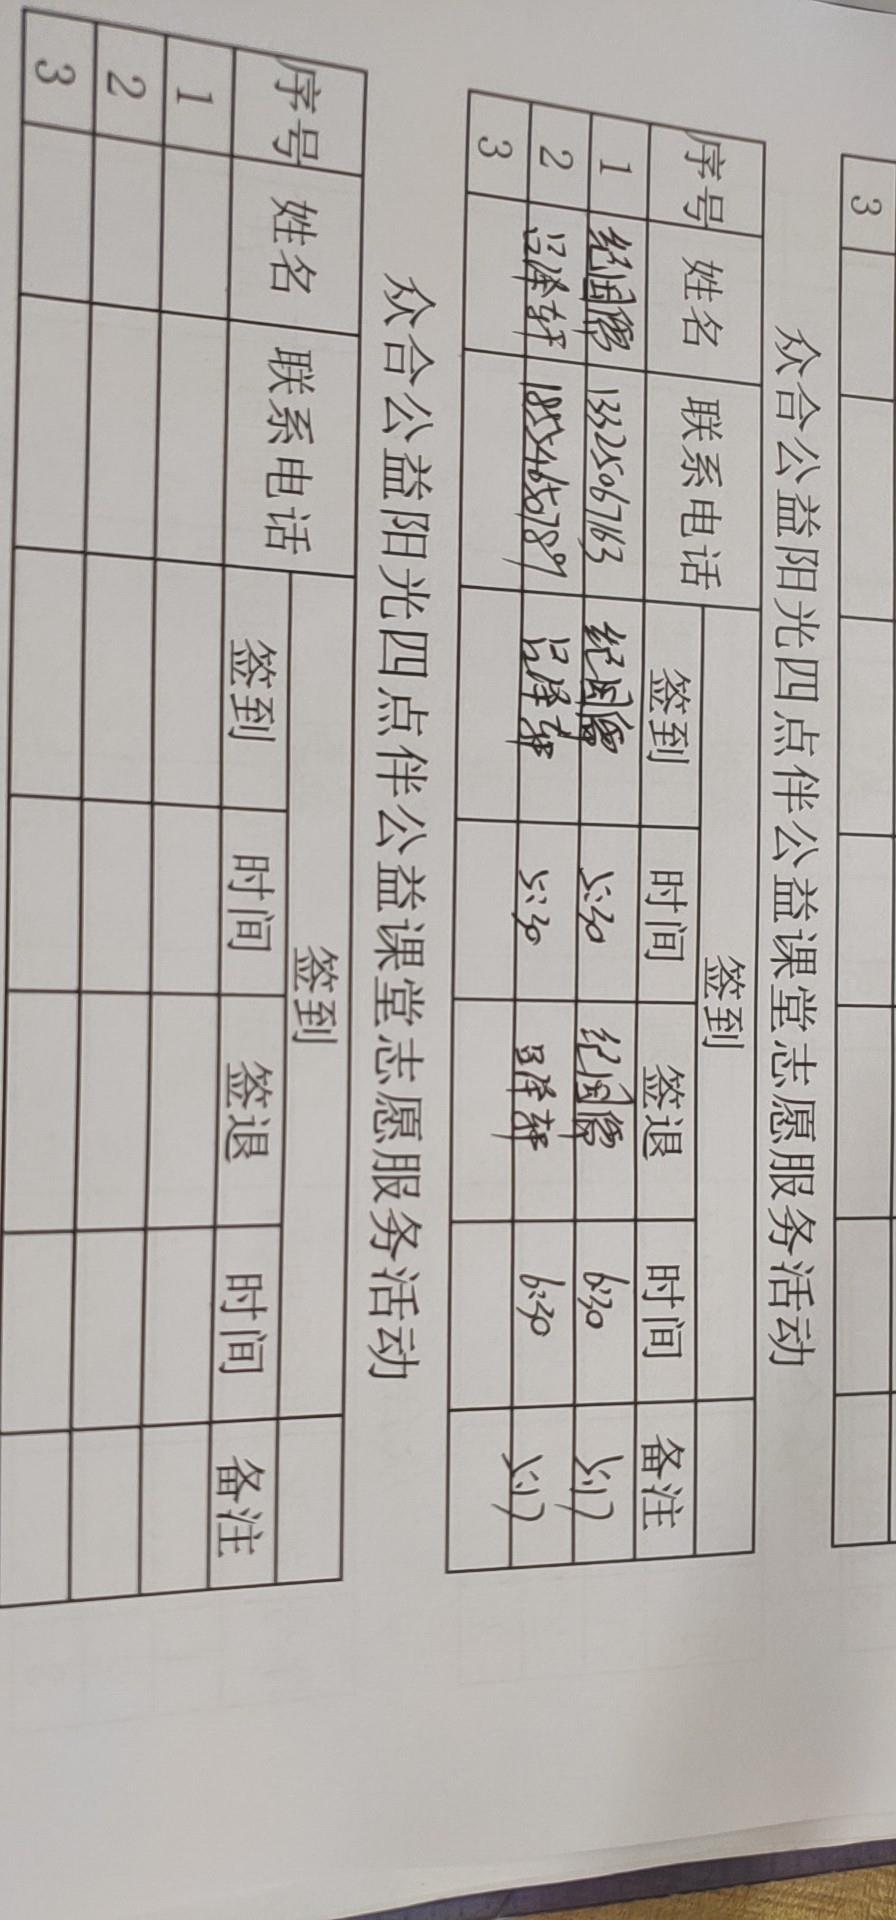 3
众合公益阳光四点伴公益课堂志愿服务活动
序号 姓名 联系电话 签到
签到 时间 签退 时间 备注
1 纪闰儒 13325067163 纪闰儒 5:30 纪闰儒 6:30 5.17
2 吕泽轩 18554650789 吕泽轩 5:30 吕泽轩 6:30 5.17
3
众合公益阳光四点伴公益课堂志愿服务活动
序号 姓名 联系电话 签到
签到 时间 签退 时间 备注
1
2
3